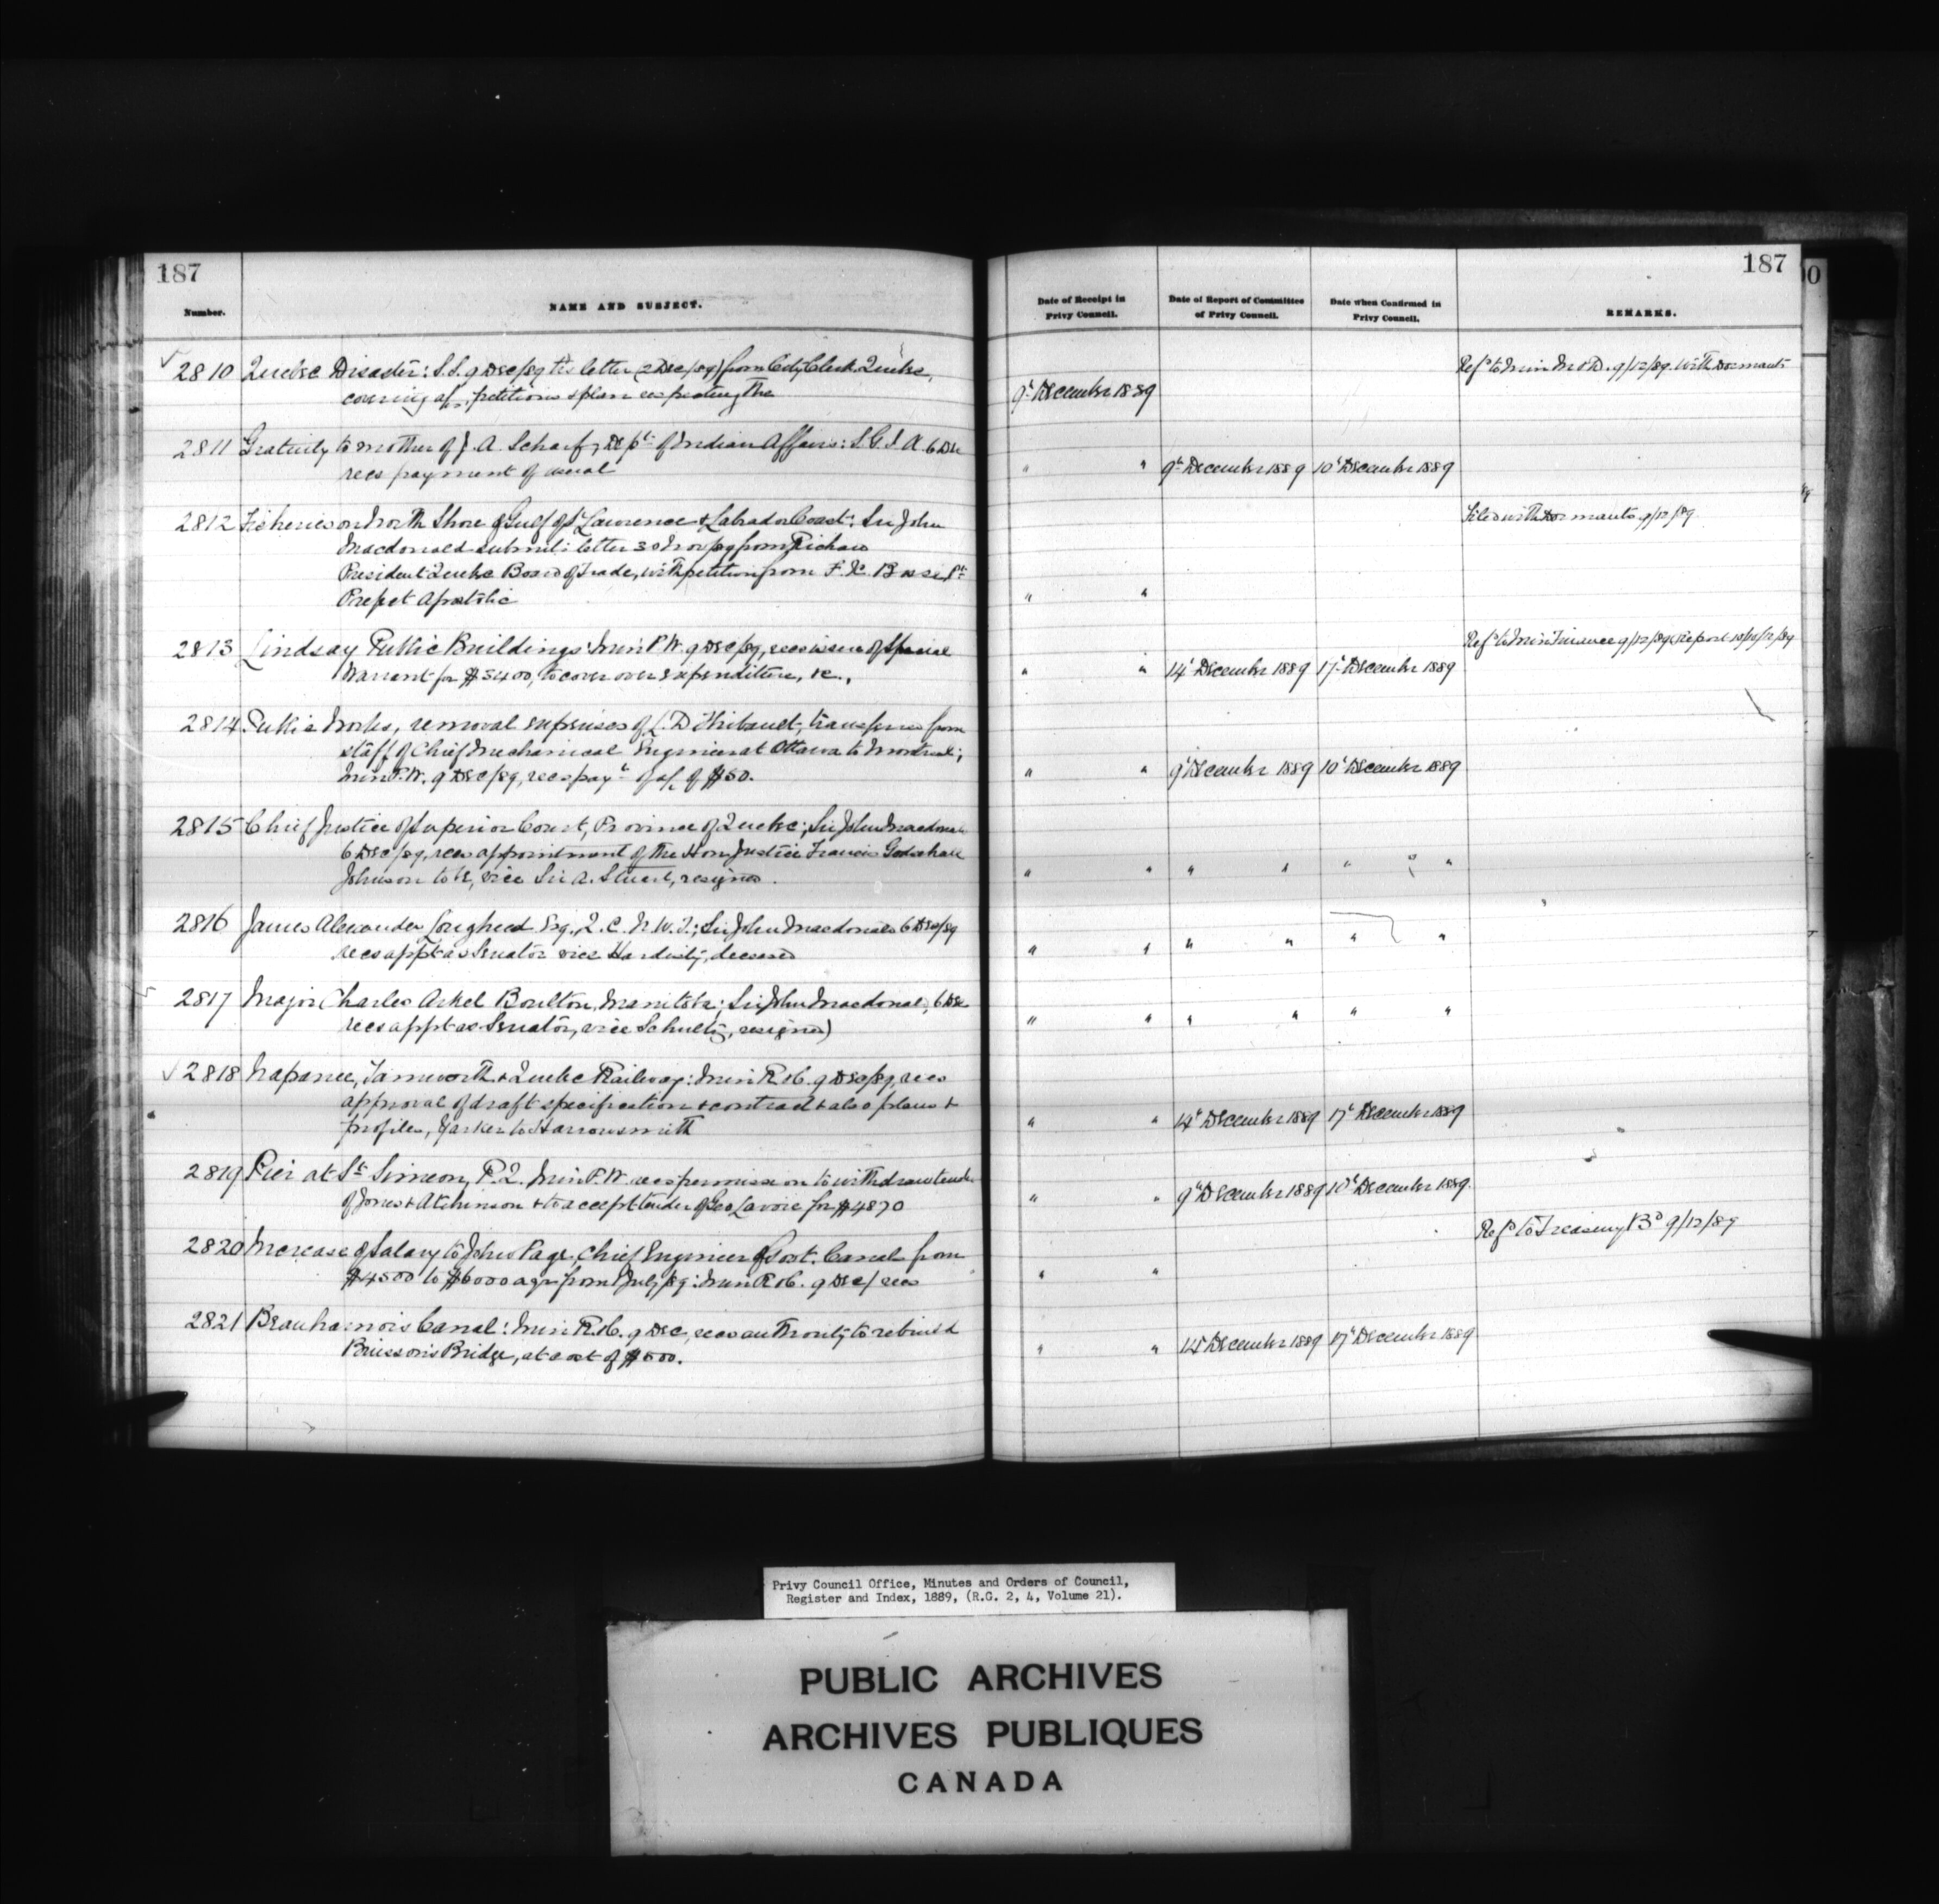 187
Number.
NAME AND SUBJECT.
2810 Quebec Disaster: S.S. 9 Dec/89 letter (2 Dec/89) from City Clerk Quebec,
covering petitions & plan respecting the
2811 Gratuity to mother of J. A. Scharf, Dept. of Indian Affairs: S.G.I.A. 6 Dec
recs payment of usual
2812 Fisheries on North Shore of Gulf of St Lawrence & Labrador Coast: Sir John
Macdonald submits letter 30 Nov/89 from
President Quebec Board of Trade, with petition from F. X. Bossé Pt
Prefect Apostolic
2813 Lindsay Public Buildings: Min P.W. 9 Dec/89, recs issue of Special
Warrant for $3400, to cover over expenditure, &c.,
2814 Public Works, removal expenses of L. D. Thibault, transferred from
staff of Chief Mechanical Engineer at Ottawa to Montreal;
Min P.W. 9 Dec/89, recs payt of a/c of $50.
2815 Chief Justice of Superior Court, Province of Quebec; Sir John Macdonald
6 Dec/89, recs appointment of the Hon Justice Francis Godschall
Johnson to be, vice Sir A. Stuart, resigned.
2816 James Alexander Lougheed Esq., Q.C. N.W.T.; Sir John Macdonald 6 Dec/89
recs appt as Senator vice Hardisty, deceased
2817 Major Charles Arkel Boulton, Manitoba; Sir John Macdonald, 6 Dec
recs appt as Senator, vice Schultz, resigned
2818 Napanee, Tamworth & Quebec Railway: Min R & C. 9 Dec/89, recs
approval of draft specification & contract & also plans &
profiles, Yarker to Harrowsmith
2819 Pier at St Simeon, P.Q. Min P.W. recs permission to withdraw tender
of Jones & Atchinson & to accept tender of Geo Lavoie for $4870
2820 Increase of Salary to John Page, Chief Engineer of Govt. Canals from
$4500 to $6000 a yr from 1 July/89: Min R & C. 9 Dec/ recs
2821 Beauharnois Canal: Min R. & C. 9 Dec, recs authority to rebuild
Buisson's Bridge, at cost of $500.
187
Date of Receipt in
Privy Council.
Date of Report of Committee
of Privy Council.
Date when Confirmed in
Privy Council.
REMARKS.
Refd to Min M & D. 9/12/89. With Dormants
9t December 1889
" " 9th December 1889 10t December 1889
Filed with Dormants 9/12/89
" "
Refd to Min Finance 9/12/89
" " 14t December 1889 17t December 1889
" " 9t December 1889 10t December 1889
" " " " " "
" " " " " "
" " " " " "
" " 14t December 1889 17t December 1889
" " 9th December 1889 10t December 1889
Refd to Treasury Bd 9/12/89
" "
" " 14t December 1889 17t December 1889
Privy Council Office, Minutes and Orders of Council,
Register and Index, 1889, (R.G. 2, 4, Volume 21).
PUBLIC ARCHIVES
ARCHIVES PUBLIQUES
CANADA